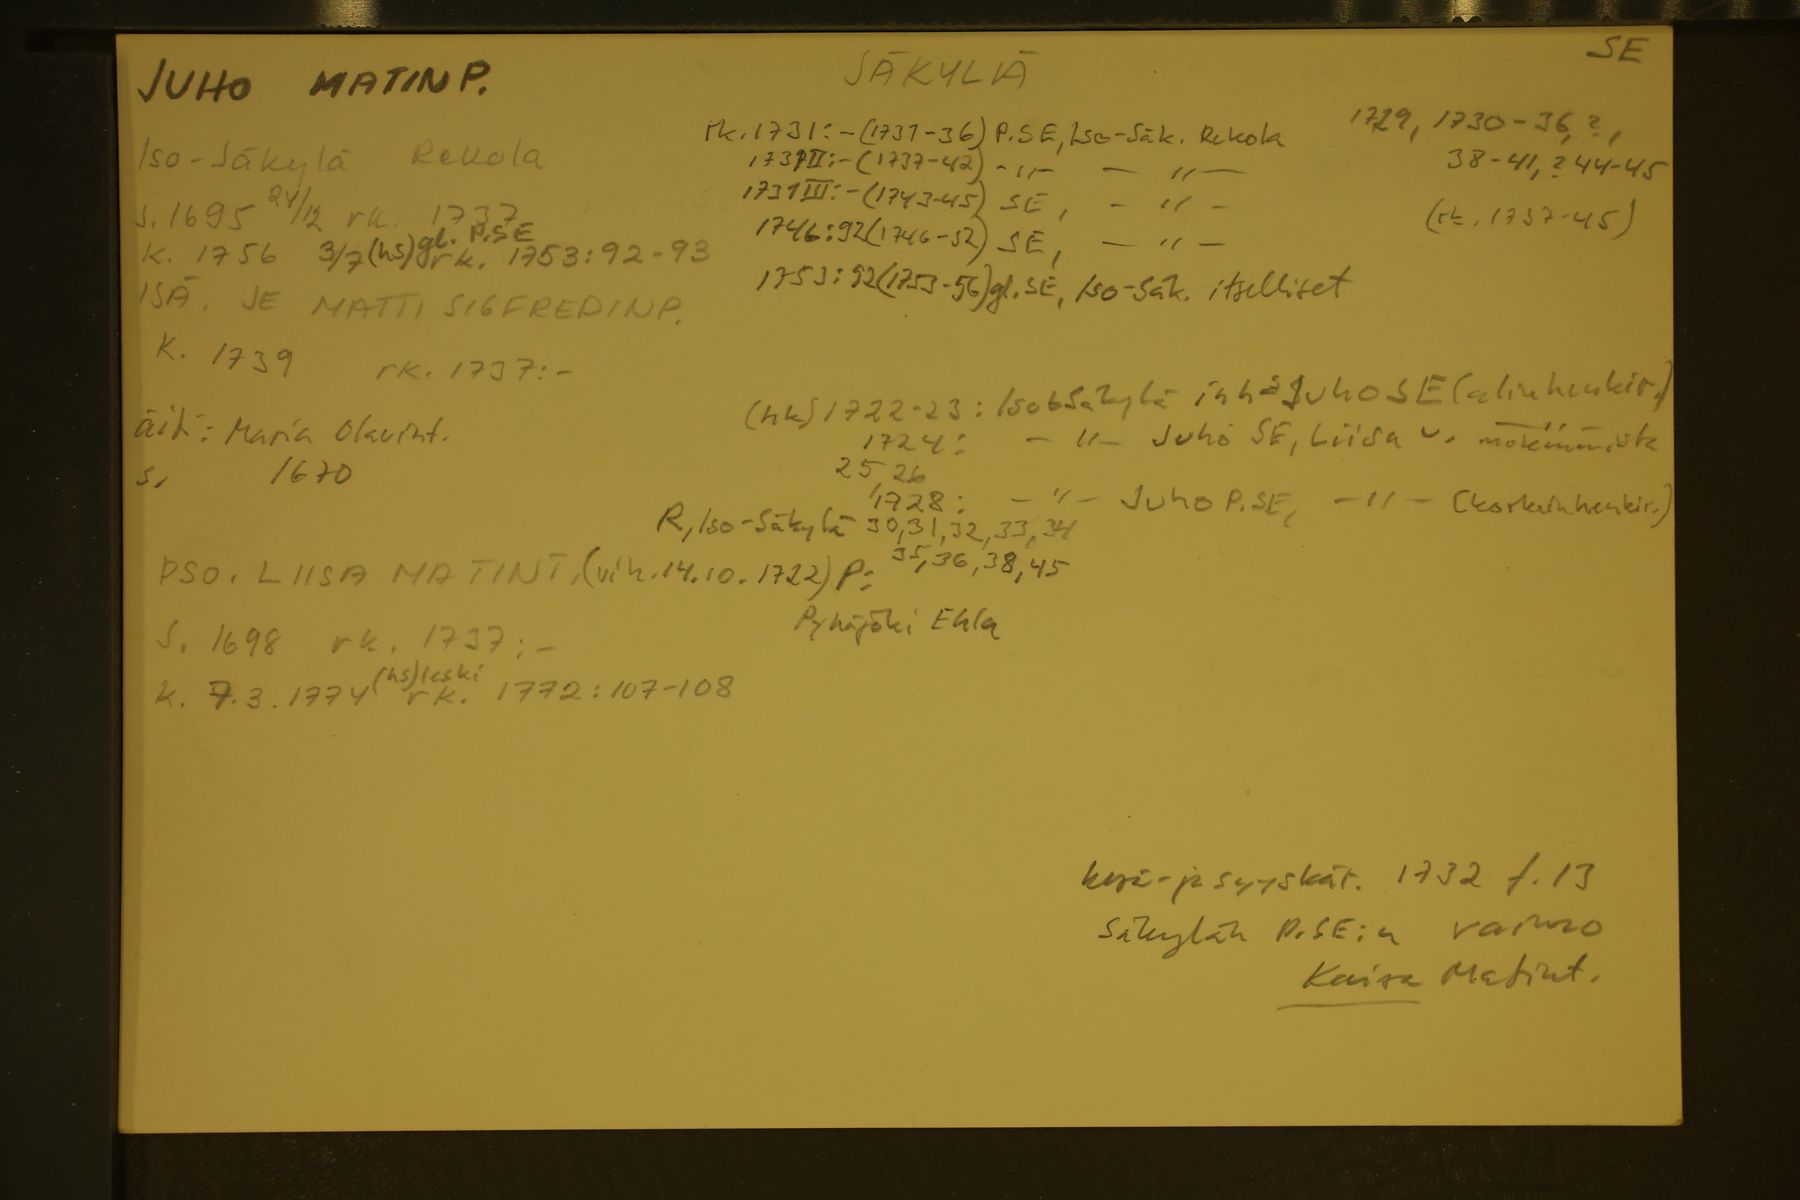 JUHO MATINP.
SÄKYLÄ
SE
Iso-Säkylä Rekola
s. 1695 24/12 rk. 1737
k. 1756 3/7 (hs) gl. P.SE rk. 1753:92-93
ISÄ. SE MATTI SIGFREDINP.
K. 1739 rk. 1737:-
äiti: Maria Olavint.
s. 1670
PSO. LIISA MATINT. (vih. 14.10.1722) P:
Pyhäjöki Ehla
S. 1698 rk. 1737:-
k. 7.3.1774 (hs) leski rk. 1772:107-108
rk. 1731:-(1731-36) P.SE, Iso-Säk. Rekola
1731II:-(1737-42) -"- - "-
1731III:-(1743-45) SE, - " -
1746:92(1746-52) SE, - " -
1753:92(1753-56) gl. SE, Iso-Säk. itselliset
1729, 1730-36, ?,
38-41, ? 44-45
(rk. 1737-45)
(hk) 1722-23: Iso-Säkylä inh. Juho SE
1724: - "- Juho SE, Liisa v.
25, 26
1728: - " - Juho P.SE, - " -
R, Iso-Säkylä 30, 31, 32, 33, 34
35, 36, 38, 45
kesä- ja syyskär. 1732 f. 13
Säkylän P.SE:n vaimo
Kaisa Matint.